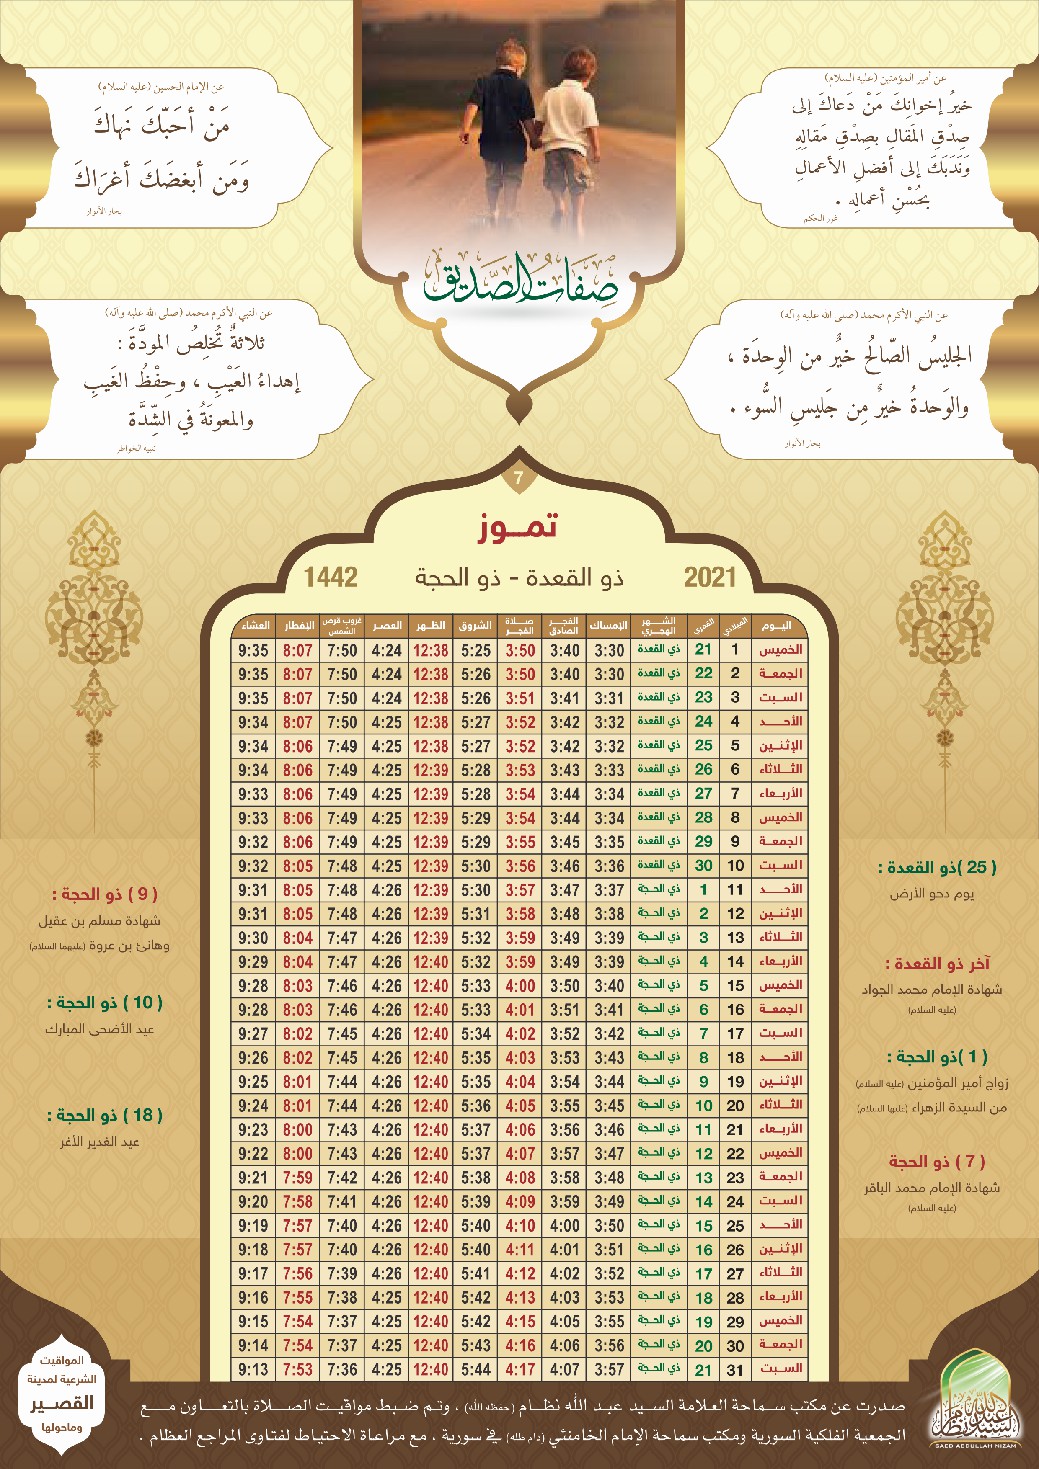 عن أمير المؤمنين (عليه السلام)
خيرُ إخوانِكَ مَنْ دَعاكَ إلى
صِدْقِ المَقالِ بصِدْقِ مَقالِهِ
وَنَدَبَكَ إلى أفضلِ الأعمالِ
بِحُسْنِ أعمالِه .
غرر الحكم
عن الإمام الحسين (عليه السلام)
مَنْ أحَبّكَ نَهاكَ
وَمَن أبغضَكَ أغرَاكَ
بحار الأنوار
صفات الصديق
عن النبي الأكرم محمد (صلى الله عليه وآله)
الجليسُ الصّالحُ خيرٌ من الوِحدَة ،
والوَحدةُ خيرٌ مِن جَليسِ السُّوء .
بحار الأنوار
عن النبي الأكرم محمد (صلى الله عليه وآله)
ثلاثةٌ تُخلِصُ المودَّةَ :
إهداءُ العَيْبِ ، وحِفْظُ الغَيبِ
والمعونَةُ في الشِّدَّة
تنبيه الخواطر
7
تمـــوز
2021 ذو القعدة - ذو الحجة 1442
اليــوم الميلادي القمري الشـــهر الهجري الإمساك الفجـــر الصادق صـــلاة الفجـــر الشروق الظــهر العصـر غروب قرص الشمس الإفطار العشاء
الخميس 1 21 ذي القعدة 3:30 3:40 3:50 5:25 12:38 4:24 7:50 8:07 9:35
الجمعــة 2 22 ذي القعدة 3:30 3:40 3:50 5:26 12:38 4:24 7:50 8:07 9:35
الســبت 3 23 ذي القعدة 3:31 3:41 3:51 5:26 12:38 4:24 7:50 8:07 9:35
الأحـــد 4 24 ذي القعدة 3:32 3:42 3:52 5:27 12:38 4:25 7:50 8:07 9:34
الإثنـين 5 25 ذي القعدة 3:32 3:42 3:52 5:27 12:38 4:25 7:49 8:06 9:34
الثــلاثاء 6 26 ذي القعدة 3:33 3:43 3:53 5:28 12:39 4:25 7:49 8:06 9:34
الأربـعاء 7 27 ذي القعدة 3:34 3:44 3:54 5:28 12:39 4:25 7:49 8:06 9:33
الخميس 8 28 ذي القعدة 3:34 3:44 3:54 5:29 12:39 4:25 7:49 8:06 9:33
الجمعــة 9 29 ذي القعدة 3:35 3:45 3:55 5:29 12:39 4:25 7:49 8:06 9:32
الســبت 10 30 ذي القعدة 3:36 3:46 3:56 5:30 12:39 4:25 7:48 8:05 9:32
الأحـــد 11 1 ذي الحـجة 3:37 3:47 3:57 5:30 12:39 4:26 7:48 8:05 9:31
الإثنـين 12 2 ذي الحـجة 3:38 3:48 3:58 5:31 12:39 4:26 7:48 8:05 9:31
الثــلاثاء 13 3 ذي الحـجة 3:39 3:49 3:59 5:32 12:39 4:26 7:47 8:04 9:30
الأربـعاء 14 4 ذي الحـجة 3:39 3:49 3:59 5:32 12:40 4:26 7:47 8:04 9:29
الخميس 15 5 ذي الحـجة 3:40 3:50 4:00 5:33 12:40 4:26 7:46 8:03 9:28
الجمعــة 16 6 ذي الحـجة 3:41 3:51 4:01 5:33 12:40 4:26 7:46 8:03 9:28
الســبت 17 7 ذي الحـجة 3:42 3:52 4:02 5:34 12:40 4:26 7:45 8:02 9:27
الأحـــد 18 8 ذي الحـجة 3:43 3:53 4:03 5:35 12:40 4:26 7:45 8:02 9:26
الإثنـين 19 9 ذي الحـجة 3:44 3:54 4:04 5:35 12:40 4:26 7:44 8:01 9:25
الثــلاثاء 20 10 ذي الحـجة 3:45 3:55 4:05 5:36 12:40 4:26 7:44 8:01 9:24
الأربـعاء 21 11 ذي الحـجة 3:46 3:56 4:06 5:37 12:40 4:26 7:43 8:00 9:23
الخميس 22 12 ذي الحـجة 3:47 3:57 4:07 5:37 12:40 4:26 7:43 8:00 9:22
الجمعــة 23 13 ذي الحـجة 3:48 3:58 4:08 5:38 12:40 4:26 7:42 7:59 9:21
الســبت 24 14 ذي الحـجة 3:49 3:59 4:09 5:39 12:40 4:26 7:41 7:58 9:20
الأحـــد 25 15 ذي الحـجة 3:50 4:00 4:10 5:40 12:40 4:26 7:40 7:57 9:19
الإثنـين 26 16 ذي الحـجة 3:51 4:01 4:11 5:40 12:40 4:26 7:40 7:57 9:18
الثــلاثاء 27 17 ذي الحـجة 3:52 4:02 4:12 5:41 12:40 4:26 7:39 7:56 9:17
الأربـعاء 28 18 ذي الحـجة 3:53 4:03 4:13 5:42 12:40 4:25 7:38 7:55 9:16
الخميس 29 19 ذي الحـجة 3:55 4:05 4:15 5:42 12:40 4:25 7:37 7:54 9:15
الجمعــة 30 20 ذي الحـجة 3:56 4:06 4:16 5:43 12:40 4:25 7:37 7:54 9:14
الســبت 31 21 ذي الحـجة 3:57 4:07 4:17 5:44 12:40 4:25 7:36 7:53 9:13
( 25 )ذو القعدة :
يوم دحو الأرض
آخر ذو القعدة :
شهادة الإمام محمد الجواد
(عليه السلام)
( 1 )ذو الحجة :
زواج أمير المؤمنين (عليه السلام)
من السيدة الزهراء (عليها السلام)
( 7 ) ذو الحجة
شهادة الإمام محمد الباقر
(عليه السلام)
( 9 ) ذو الحجة :
شهادة مسلم بن عقيل
وهانئ بن عروة (عليهما السلام)
( 10 ) ذو الحجة :
عيد الأضحى المبارك
( 18 ) ذو الحجة :
عيد الغدير الأغر
صدرت عن مكتب سماحة العلامة السيد عبد الله نظـام (حفظه الله) ، وتـم ضبـط مواقيـت الصـلاة بالتعـاون مـع
الجمعية الفلكية السورية ومكتب سماحة الإمام الخامنئي (دام ظله) في سورية ، مع مراعاة الاحتياط لفتاوى المراجع العظام .
المواقيت
الشرعية لمدينة
القصــير
وماحولها
السيد عبدالله نظام
SAED ABDULLAH NIZAM